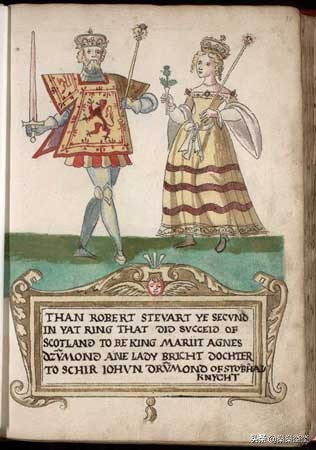 THAN ROBERT STEVART YE SECVND
IN YAT RING THAT DID SVCCEID OF
SCOTLAND TO BE KING MARIIT AGNES
DRVMOND ANE LADY BRICHT DOCHTER
TO SCHIR IOHVN DRVMOND OF STOBHALL
KNYCHT